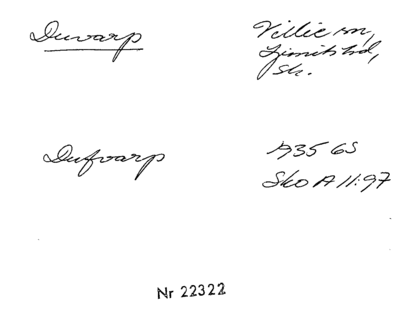 Duvarp
Villie sn,
Ljunits hd,
Sk.
Dufvarp
1935 GS
Sko A 11:97
Nr 22322